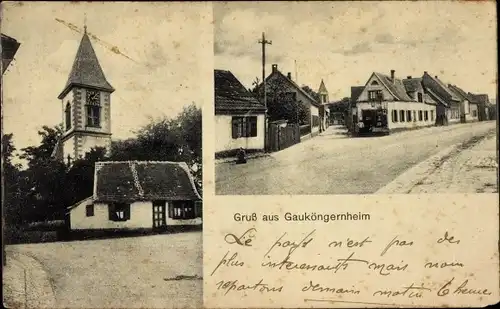 Gruß aus Gauköngernheim
Le pays n'est pas des
plus interessants mais nous
repartons demain matin